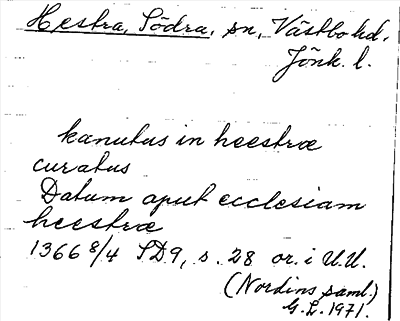 Hestra, Södra, sn, Västbo hd.
Jönk. l.
kanutus in heestræ
curatus
Datum aput ecclesiam
heestræ
1366 8/4 SD9, s. 28 or. i U.U.
(Nordins saml.)
G.L. 1971.